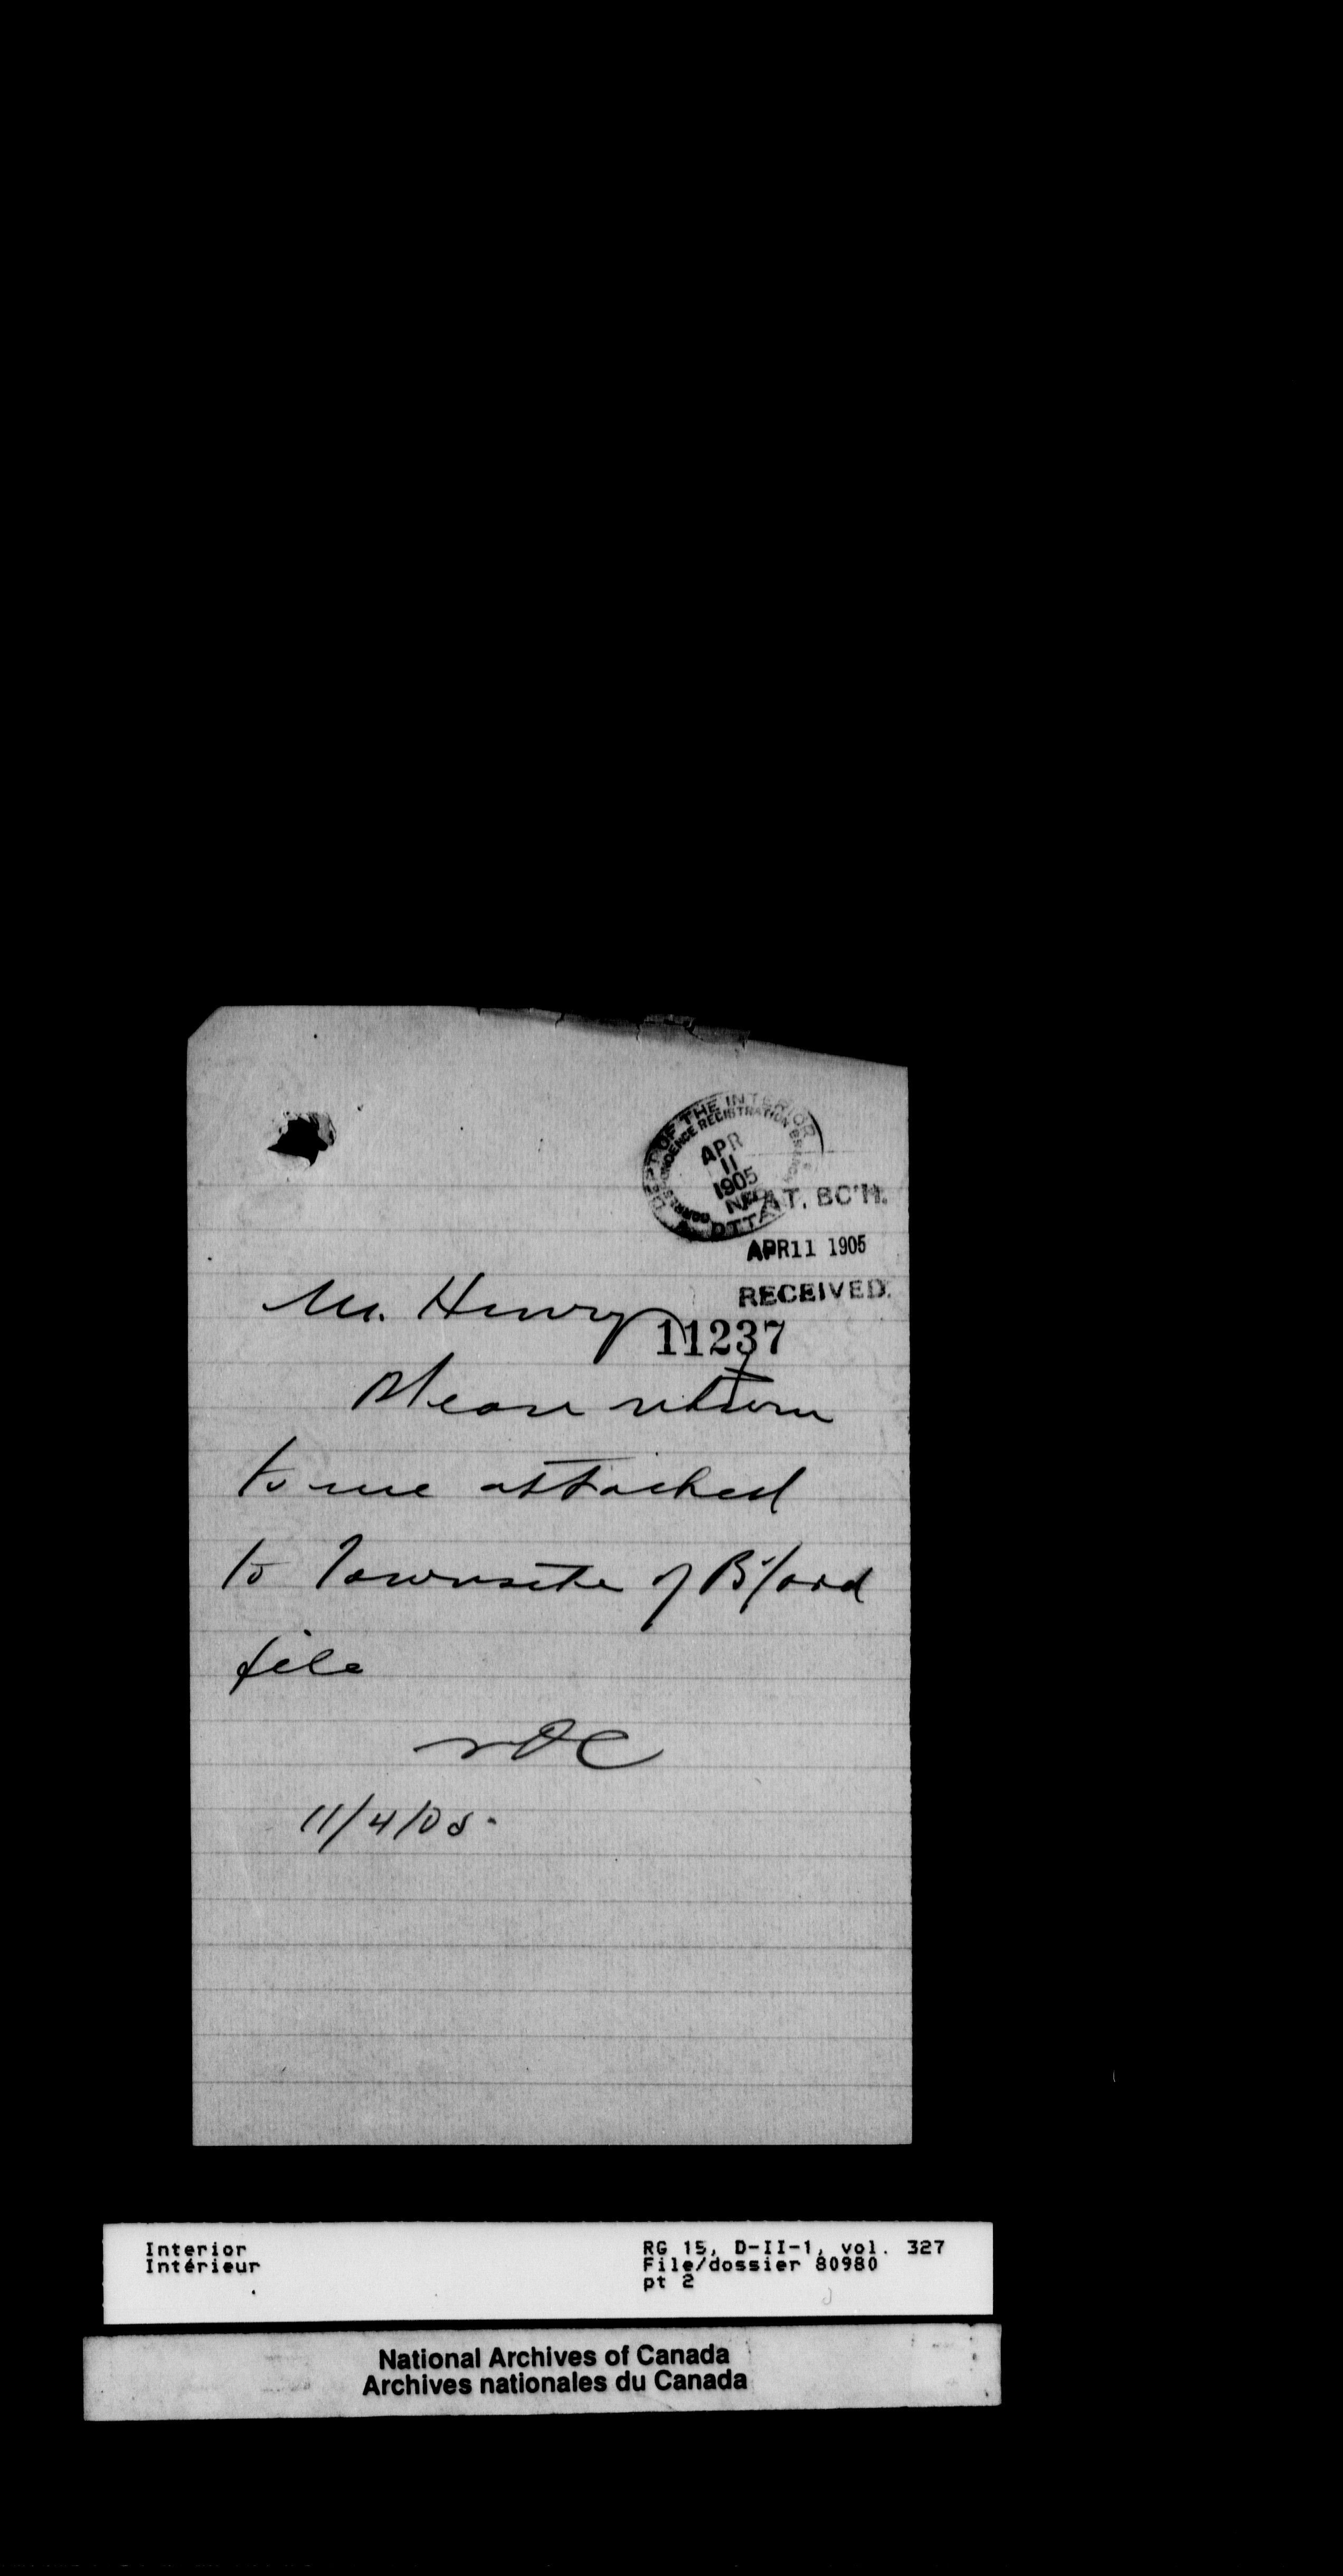 DEPT OF THE INTERIOR
CORRESPONDENCE REGISTRATION BRANCH
APR
11
1905
OTTAWA
PAT, BC'H.
APR 11 1905
RECEIVED.
Mr. Henry
11237
Please return
to me attached
to Townsite of B'ford
file
11/4/05.
Interior
Intérieur
RG 15, D-II-1, vol. 327
File/dossier 80980
pt 2
National Archives of Canada
Archives nationales du Canada